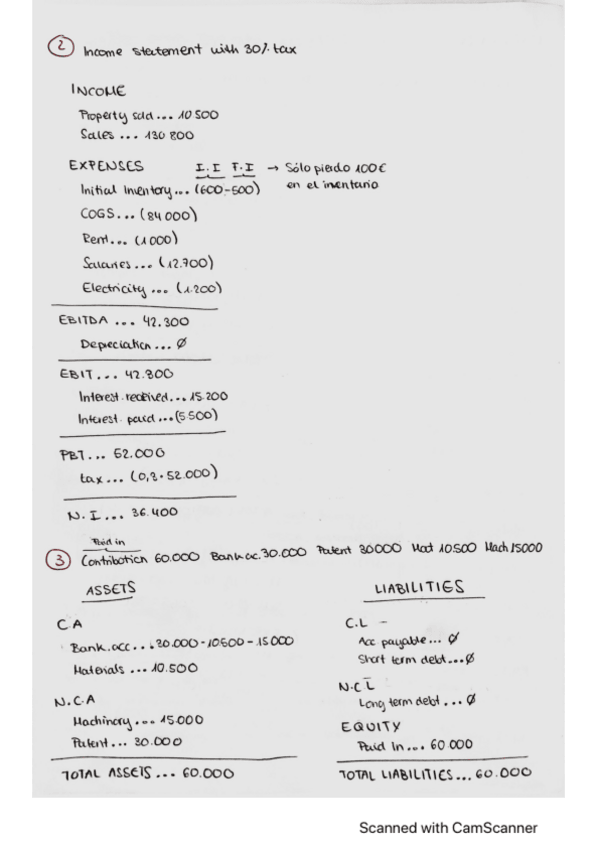 2 Income statement with 30% tax
INCOME
Property sold... 10 500
Sales... 130 800
EXPENSES I.I F.I → Sólo pierdo 100€
en el inventario
Initial Inventory... (600-500)
COGS... (84 000)
Rent... (1 000)
Salaries... (12.700)
Electricity... (1.200)
EBITDA ... 42.300
Depreciation... Ø
EBIT... 42.300
Interest received... 15.200
Interest paid ...(5.500)
PBT... 52.000
tax... (0,3·52.000)
N.I... 36.400
Paid in
3 Contribution 60.000 Bank ac. 30.000 Patent 30000 Mat 10.500 Mach 15000
ASSETS
CA
Bank.acc... 30.000-10500-15000
Materials ... 10.500
N.C.A
Machinery... 15.000
Patent... 30.000
TOTAL ASSETS... 60.000
LIABILITIES
C.L -
Acc payable... Ø
Short term debt...Ø
N.C.L
Long term debt... Ø
EQUITY
Paid In... 60 000
TOTAL LIABILITIES... 60.000
Scanned with CamScanner